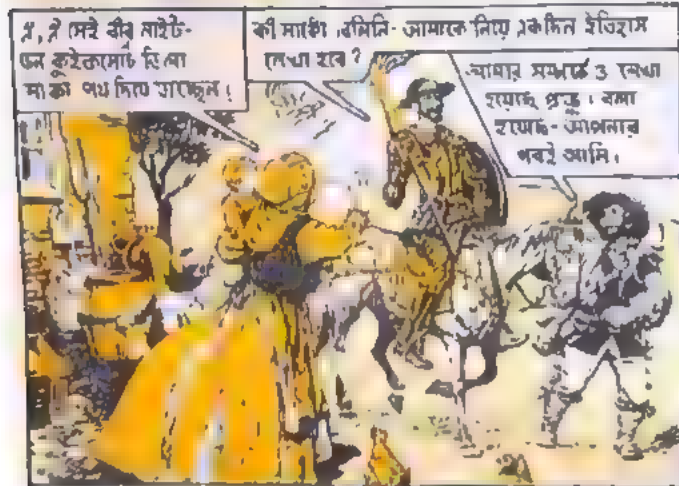 ঐ, ঐ সেই বীর নাইট-
ডন কুইকসোট ডি লা
মাঞ্চা পথ দিয়ে যাচ্ছেন।
কী সাঙ্কো বলিনি- আমাকে নিয়ে একদিন ইতিহাস
লেখা হবে?
আমার সম্পর্কে ও লেখা
হয়েছে প্রভু। বলা
হয়েছে- আপনার
পরই আমি।